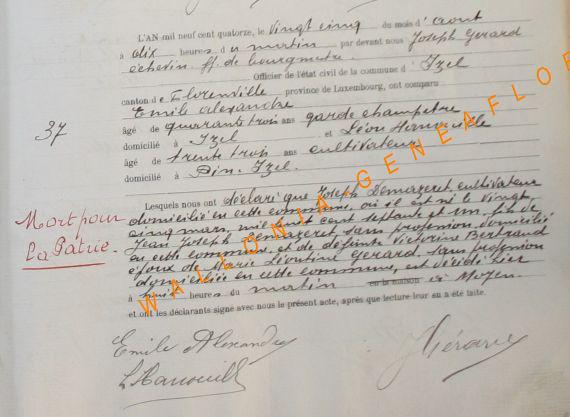 L'AN mil neuf cent quatorze, le vingt cinq du mois d'aout
à dix heures du matin par devant nous Joseph Gerard
échevin ff. de bourgmestre
Officier de l'état civil de la commune d'Izel
canton de Florenville province de Luxembourg, ont comparu
Emile Alexandre
âgé de quarante trois ans garde champetre
domicilié à Izel et Léon
37
âgé de trente trois ans cultivateur
domicilié à Pin. Izel.
Lesquels nous ont déclaré que Joseph Demazeret cultivateur
Mort pour
domicilié en cette commune, où il est né le vingt
cinq mars, mil huit cent septante et un, fils de
Jean Joseph Demazeret, sans profession, domicilié
La Patrie.
en cette commune, et de défunte Victorine Bertrand
époux de Marie Léontine Gerard, sans profession
domiciliée en cette commune, est décédé hier
à huit heures du matin en la maison à Moyen.
et ont les déclarants signé avec nous le présent acte, après que lecture leur en a été faite.
Emile Alexandre
J Gérard
WALLONIA-GENEAFLOR